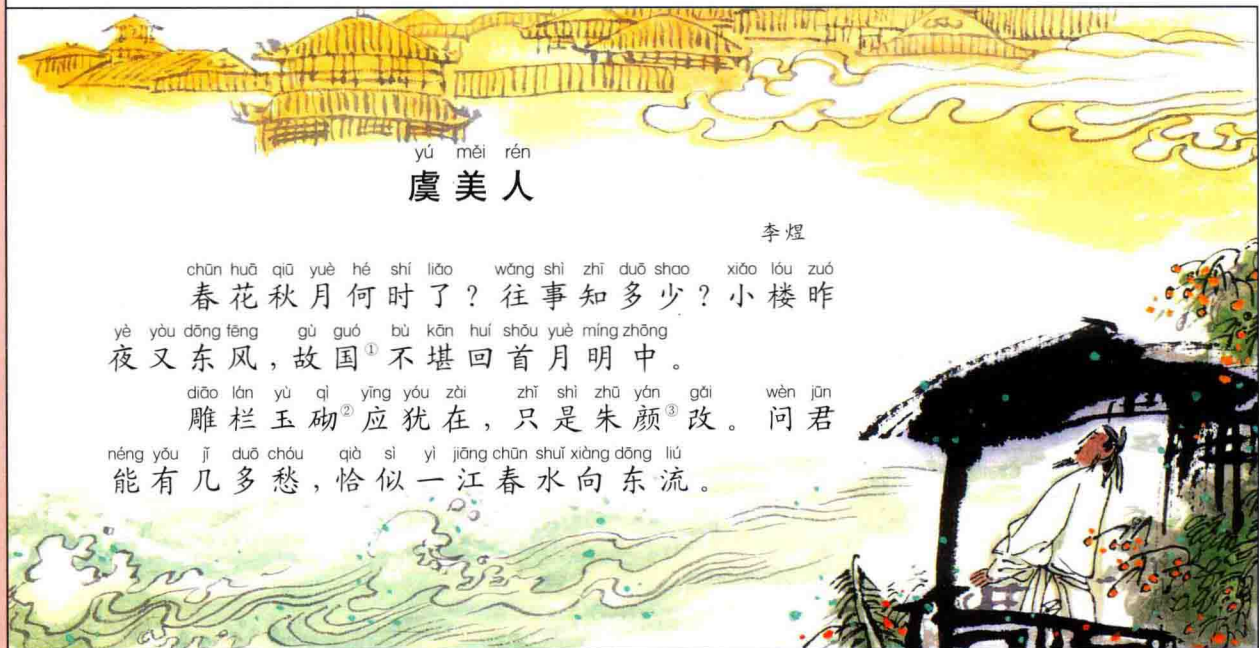 yú měi rén
虞美人
李煜
chūn huā qiū yuè hé shí liǎo wǎng shì zhī duō shao xiǎo lóu zuó
春花秋月何时了？往事知多少？小楼昨
yè yòu dōng fēng gù guó bù kān huí shǒu yuè míng zhōng
夜又东风，故国①不堪回首月明中。
diāo lán yù qì yīng yóu zài zhǐ shì zhū yán gǎi wèn jūn
雕栏玉砌②应犹在，只是朱颜③改。问君
néng yǒu jǐ duō chóu qià sì yì jiāng chūn shuǐ xiàng dōng liú
能有几多愁，恰似一江春水向东流。